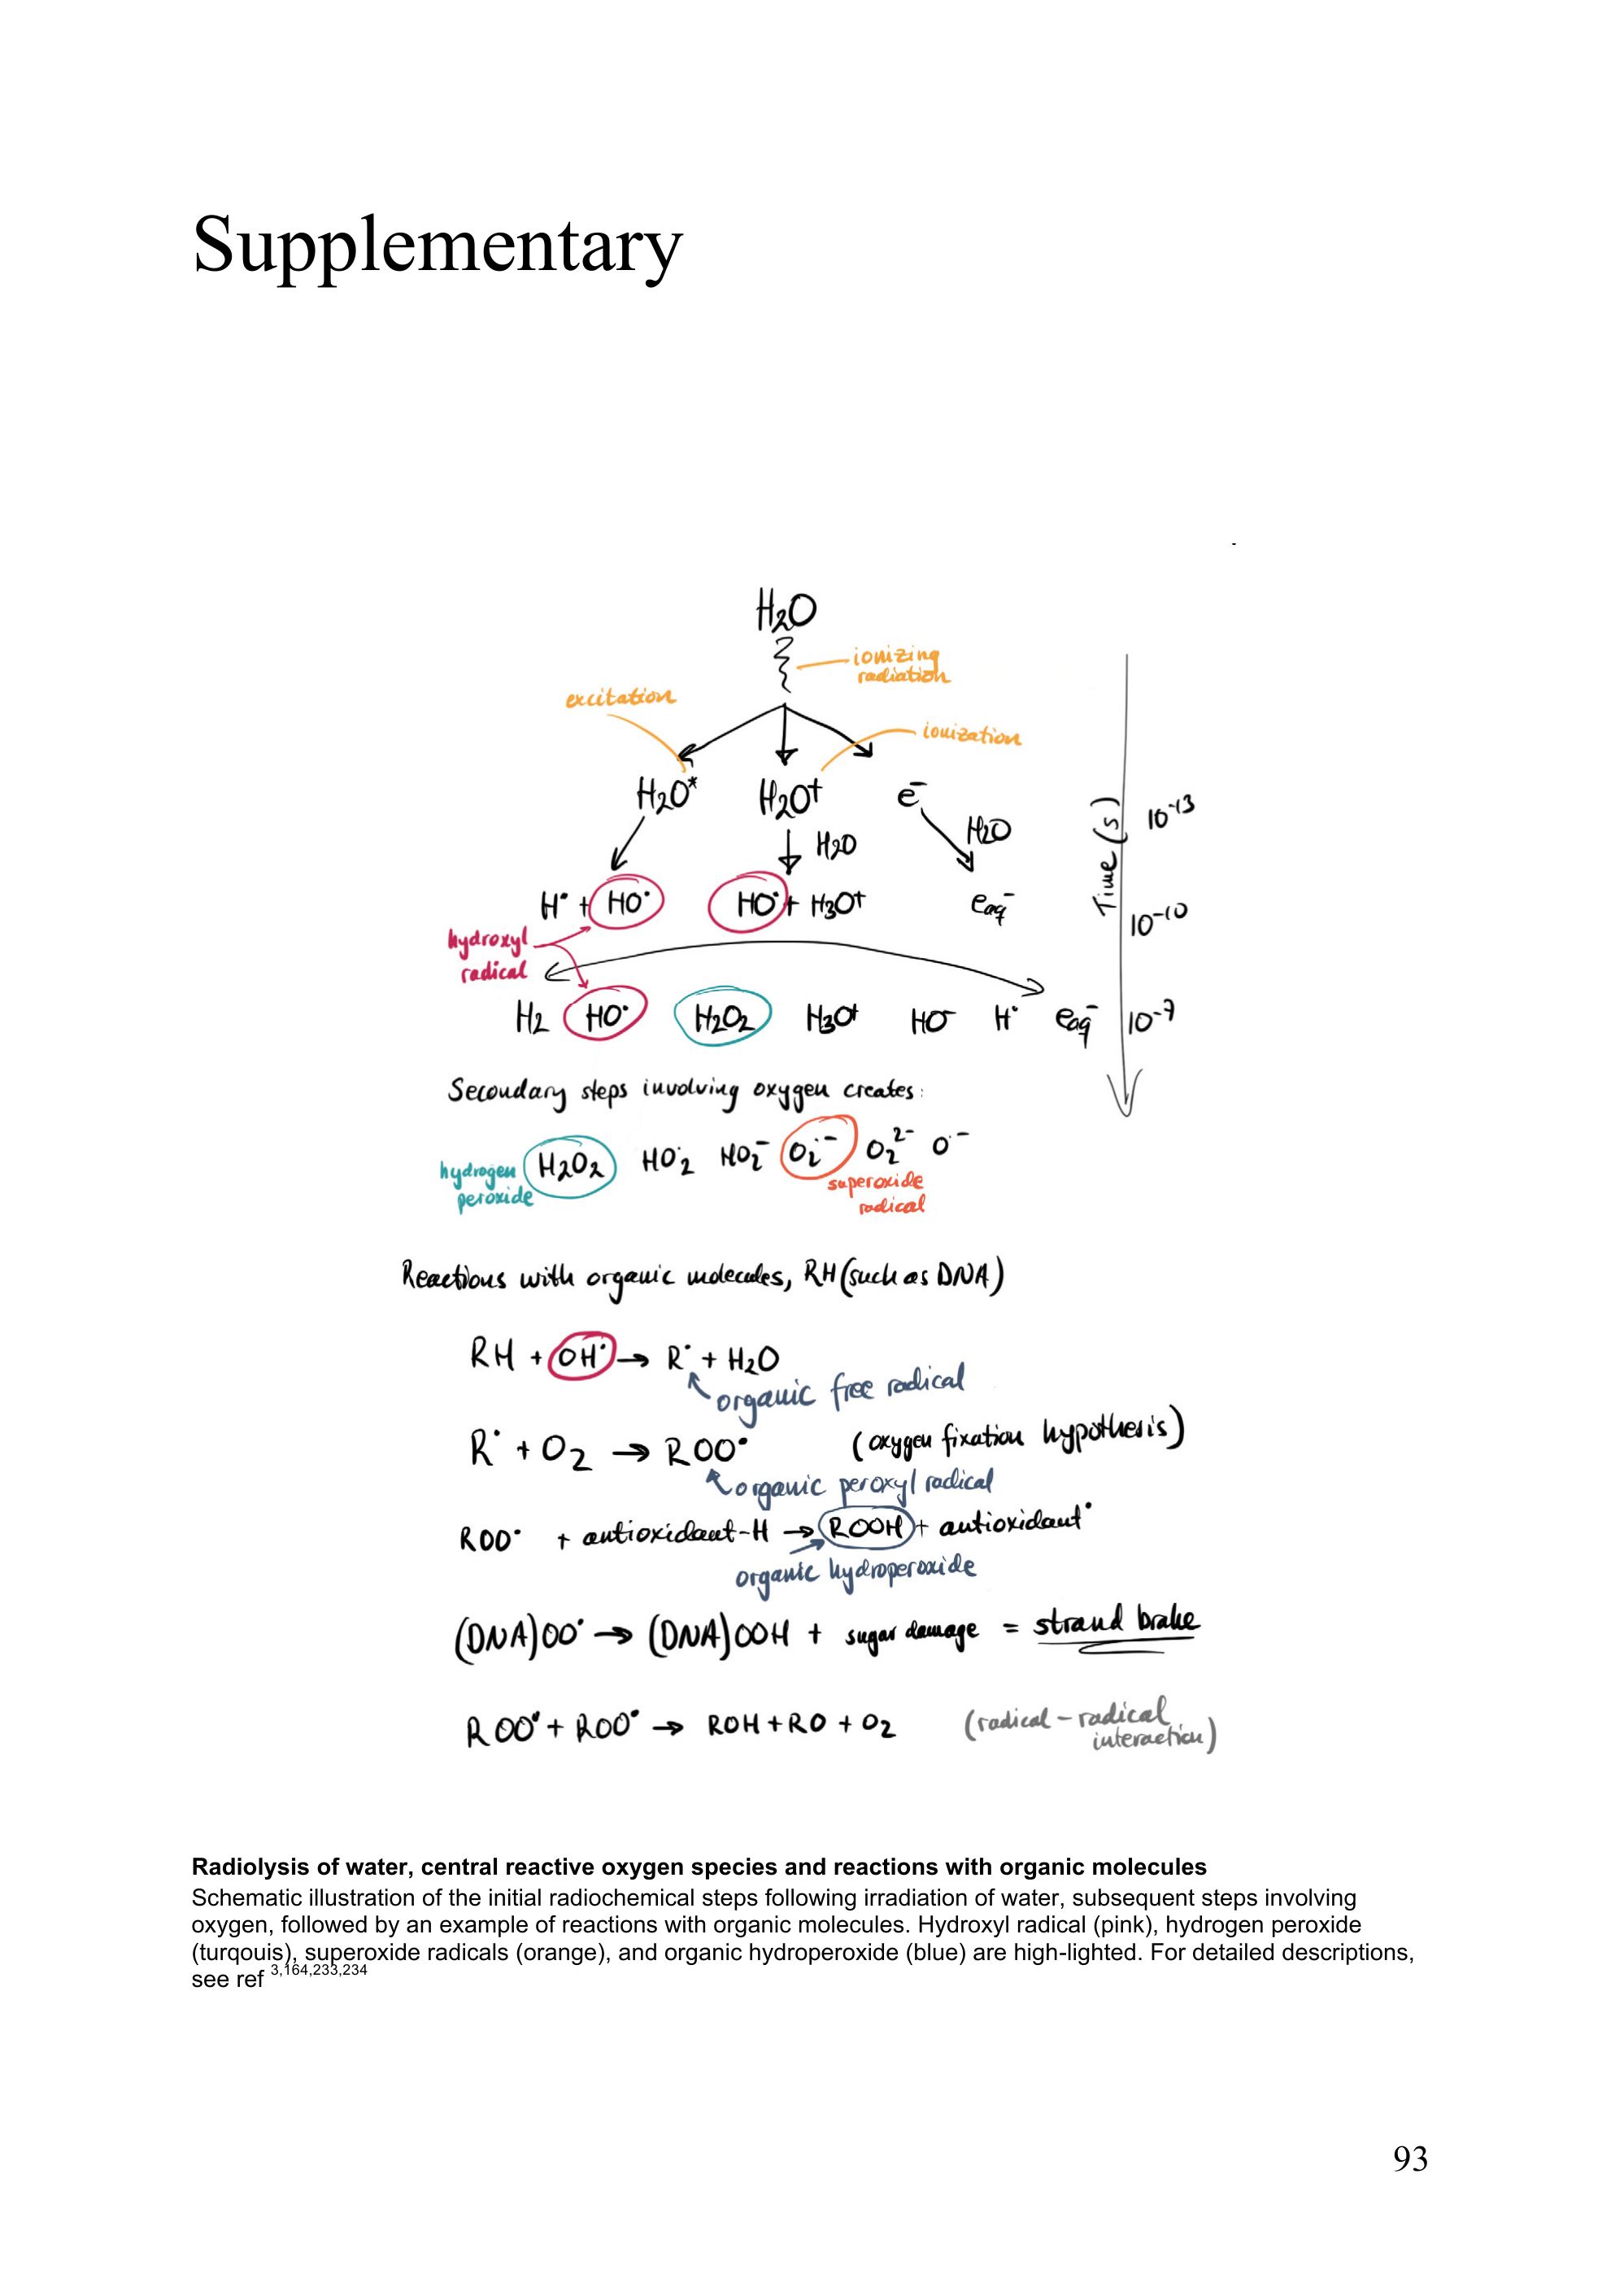 Supplementary
H2O
ionizing
radiation
excitation
ionization
H2O* H2O+ e-
10-13
H2O H2O
Time (s)
H• + HO• HO• + H3O+ eaq-
10-10
hydroxyl
radical
H2 HO• H2O2 H3O+ HO- H• eaq- 10-7
Secondary steps involving oxygen creates:
H2O2 HO•2 HO2- O2•- O2 2- O•-
hydrogen
peroxide
superoxide
radical
Reactions with organic molecules, RH (such as DNA)
RH + OH• → R• + H2O
organic free radical
R• + O2 → ROO• (oxygen fixation hypothesis)
organic peroxyl radical
ROO• + antioxidant-H → ROOH + antioxidant•
organic hydroperoxide
(DNA)OO• → (DNA)OOH + sugar damage = strand brake
ROO• + ROO• → ROH + RO + O2 (radical - radical
interaction)
Radiolysis of water, central reactive oxygen species and reactions with organic molecules
Schematic illustration of the initial radiochemical steps following irradiation of water, subsequent steps involving
oxygen, followed by an example of reactions with organic molecules. Hydroxyl radical (pink), hydrogen peroxide
(turqouis), superoxide radicals (orange), and organic hydroperoxide (blue) are high-lighted. For detailed descriptions,
see ref 3,164,233,234
93